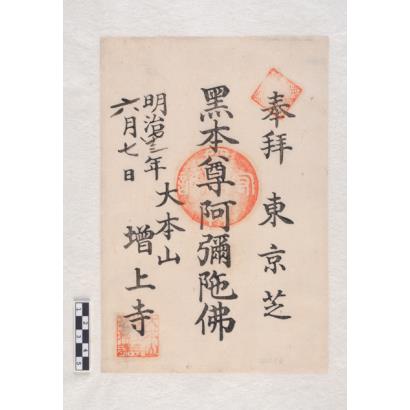 奉拜 東京芝
黑本尊阿彌陁佛
明治年
六月七日
大本山
增上寺